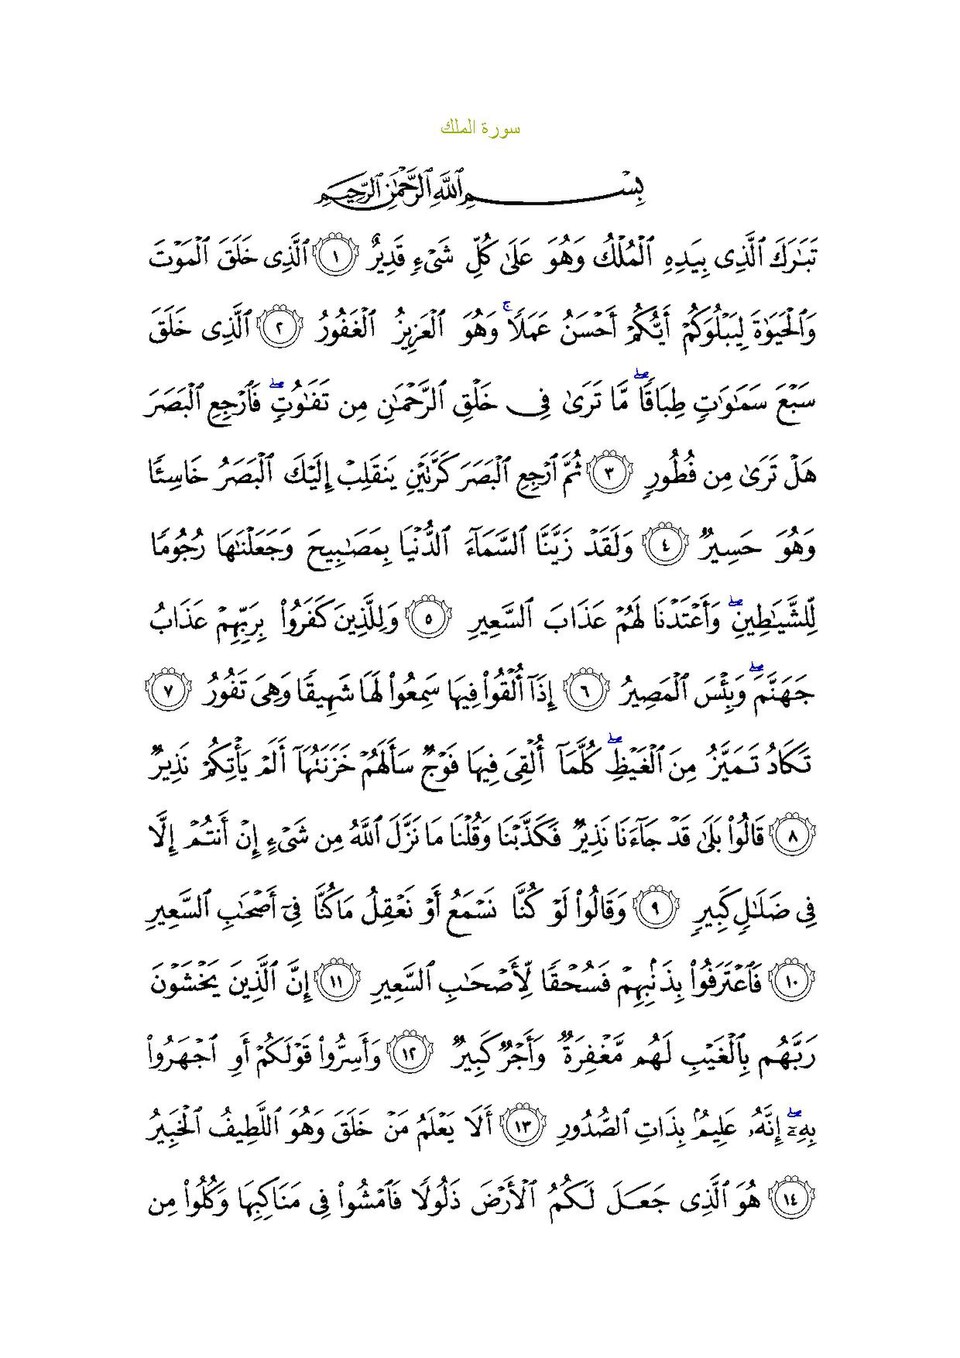 سورة الملك
بِسْمِ ٱللَّهِ ٱلرَّحْمَٰنِ ٱلرَّحِيمِ
تَبَٰرَكَ ٱلَّذِى بِيَدِهِ ٱلْمُلْكُ وَهُوَ عَلَىٰ كُلِّ شَىْءٍ قَدِيرٌ ١ ٱلَّذِى خَلَقَ ٱلْمَوْتَ
وَٱلْحَيَوٰةَ لِيَبْلُوَكُمْ أَيُّكُمْ أَحْسَنُ عَمَلًا ۚ وَهُوَ ٱلْعَزِيزُ ٱلْغَفُورُ ٢ ٱلَّذِى خَلَقَ
سَبْعَ سَمَٰوَٰتٍ طِبَاقًا ۖ مَّا تَرَىٰ فِى خَلْقِ ٱلرَّحْمَٰنِ مِن تَفَٰوُتٍ ۖ فَٱرْجِعِ ٱلْبَصَرَ
هَلْ تَرَىٰ مِن فُطُورٍ ٣ ثُمَّ ٱرْجِعِ ٱلْبَصَرَ كَرَّتَيْنِ يَنقَلِبْ إِلَيْكَ ٱلْبَصَرُ خَاسِئًا
وَهُوَ حَسِيرٌ ٤ وَلَقَدْ زَيَّنَّا ٱلسَّمَآءَ ٱلدُّنْيَا بِمَصَٰبِيحَ وَجَعَلْنَٰهَا رُجُومًا
لِّلشَّيَٰطِينِ ۖ وَأَعْتَدْنَا لَهُمْ عَذَابَ ٱلسَّعِيرِ ٥ وَلِلَّذِينَ كَفَرُوا۟ بِرَبِّهِمْ عَذَابُ
جَهَنَّمَ ۖ وَبِئْسَ ٱلْمَصِيرُ ٦ إِذَآ أُلْقُوا۟ فِيهَا سَمِعُوا۟ لَهَا شَهِيقًا وَهِىَ تَفُورُ ٧
تَكَادُ تَمَيَّزُ مِنَ ٱلْغَيْظِ ۖ كُلَّمَآ أُلْقِىَ فِيهَا فَوْجٌ سَأَلَهُمْ خَزَنَتُهَآ أَلَمْ يَأْتِكُمْ نَذِيرٌ
٨ قَالُوا۟ بَلَىٰ قَدْ جَآءَنَا نَذِيرٌ فَكَذَّبْنَا وَقُلْنَا مَا نَزَّلَ ٱللَّهُ مِن شَىْءٍ إِنْ أَنتُمْ إِلَّا
فِى ضَلَٰلٍ كَبِيرٍ ٩ وَقَالُوا۟ لَوْ كُنَّا نَسْمَعُ أَوْ نَعْقِلُ مَا كُنَّا فِىٓ أَصْحَٰبِ ٱلسَّعِيرِ
١٠ فَٱعْتَرَفُوا۟ بِذَنۢبِهِمْ فَسُحْقًا لِّأَصْحَٰبِ ٱلسَّعِيرِ ١١ إِنَّ ٱلَّذِينَ يَخْشَوْنَ
رَبَّهُم بِٱلْغَيْبِ لَهُم مَّغْفِرَةٌ وَأَجْرٌ كَبِيرٌ ١٢ وَأَسِرُّوا۟ قَوْلَكُمْ أَوِ ٱجْهَرُوا۟
بِهِۦٓ ۖ إِنَّهُۥ عَلِيمٌۢ بِذَاتِ ٱلصُّدُورِ ١٣ أَلَا يَعْلَمُ مَنْ خَلَقَ وَهُوَ ٱللَّطِيفُ ٱلْخَبِيرُ
١٤ هُوَ ٱلَّذِى جَعَلَ لَكُمُ ٱلْأَرْضَ ذَلُولًا فَٱمْشُوا۟ فِى مَنَاكِبِهَا وَكُلُوا۟ مِن